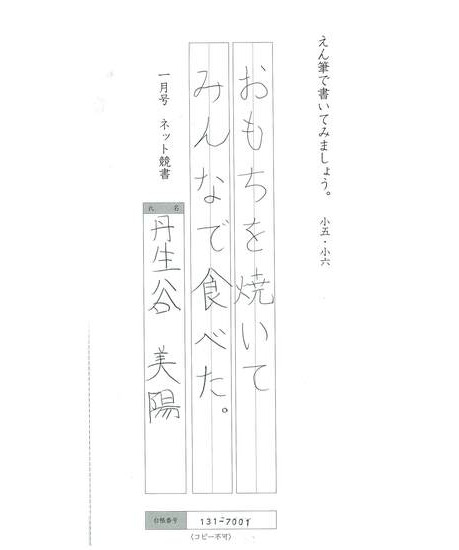 えん筆で書いてみましょう。　小五・小六
おもちを焼いて
みんなで食べた。
一月号　ネット競書
氏　名
丹生谷　美陽
台帳番号　131-7001
〈コピー不可〉